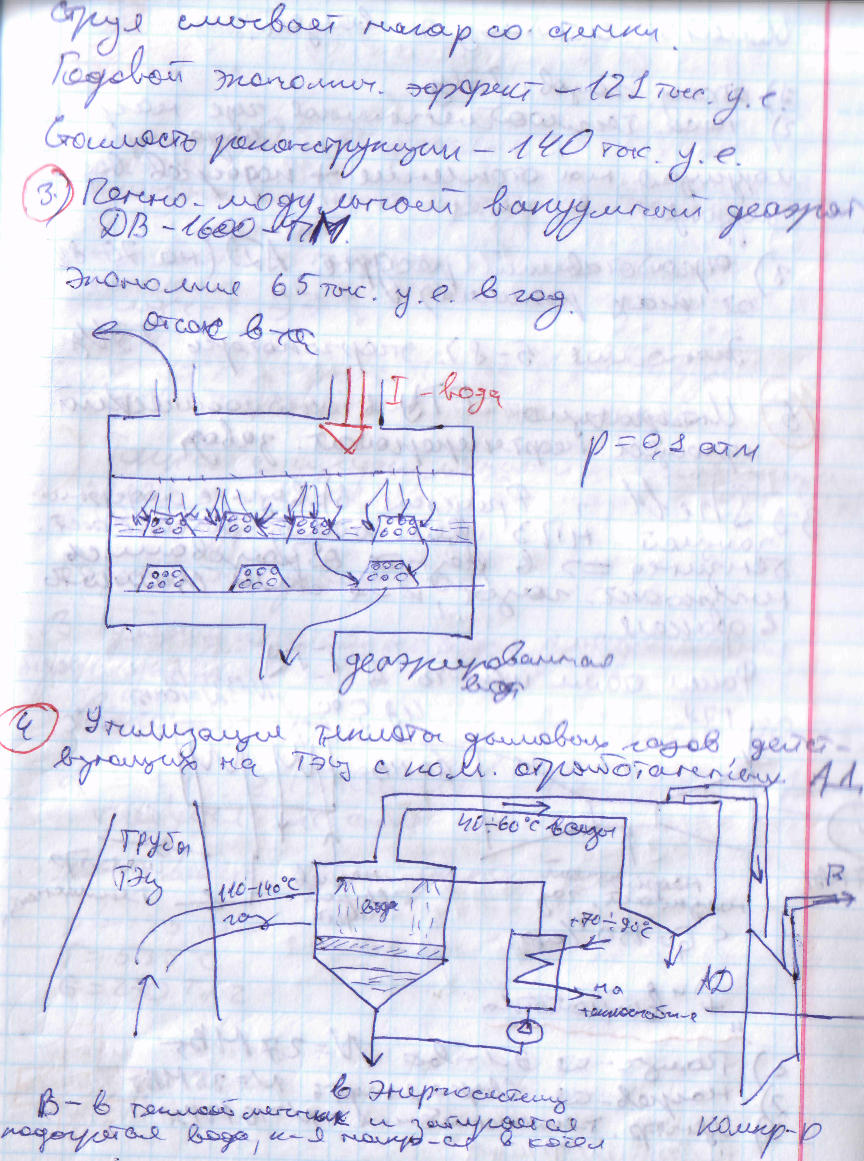 струя смывает нагар со стенки.
Годовой экономич. эффект – 121 тыс. у.е.
Стоимость реконструкции – 140 тыс. у.е.
3.) Пенно-модульный вакуумный деаэрат
ДВ-1600-ПМ.
Экономия 65 тыс. у.е. в год.
отсос
I - вода
p = 0,1 атм
деаэрированная
вода
4) Утилизация теплоты дымовых газов, дейст-
вующих на ТЭЦ с ком.
АД
40÷60°C воздух
Труба
ТЭЦ
110-140°C
газ
вода
+70÷90°C
В
на
теплоснабж-е
АД
в энергосистему
В – в теплотехник и
подогретая вода, к-я в котёл
компр-р